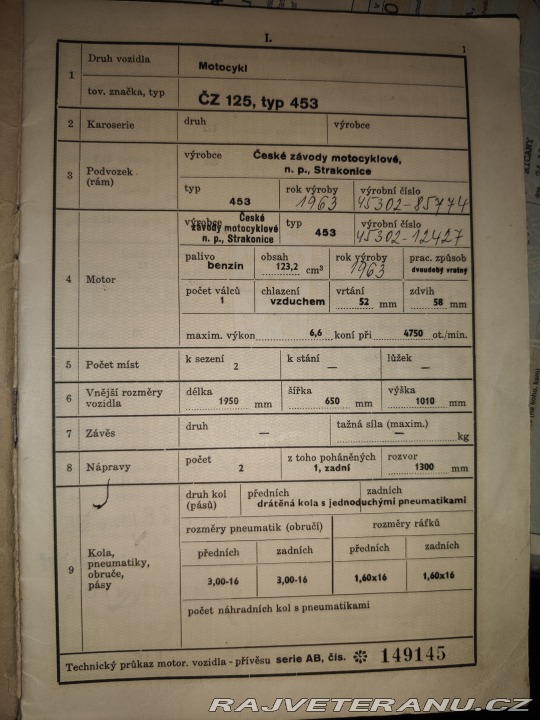 I.
1
1 Druh vozidla Motocykl
tov. značka, typ ČZ 125, typ 453
2 Karoserie druh výrobce
3 Podvozek (rám) výrobce České závody motocyklové,
n. p., Strakonice
typ rok výroby výrobní číslo
453 1963 45302-85774
4 Motor výrobce České závody motocyklové n. p., Strakonice typ 453 výrobní číslo 45302-12427
palivo obsah rok výroby prac. způsob
benzin 123,2 cm³ 1963 dvoudobý vratný
počet válců chlazení vrtání zdvih
1 vzduchem 52 mm 58 mm
maxim. výkon 6,6 koní při 4750 ot./min.
5 Počet míst k sezení k stání lůžek
2 — —
6 Vnější rozměry vozidla délka šířka výška
1950 mm 650 mm 1010 mm
7 Závěs druh tažná síla (maxim.)
— — kg
8 Nápravy počet z toho poháněných rozvor
2 1, zadní 1300 mm
9 Kola, pneumatiky, obruče, pásy
druh kol (pásů) předních zadních
drátěná kola s jednoduchými pneumatikami
rozměry pneumatik (obručí) rozměry ráfků
předních zadních předních zadních
3,00-16 3,00-16 1,60x16 1,60x16
počet náhradních kol s pneumatikami
Technický průkaz motor. vozidla - přívěsu serie AB, čís. ✼ 149145
RAJVETERANU.CZ